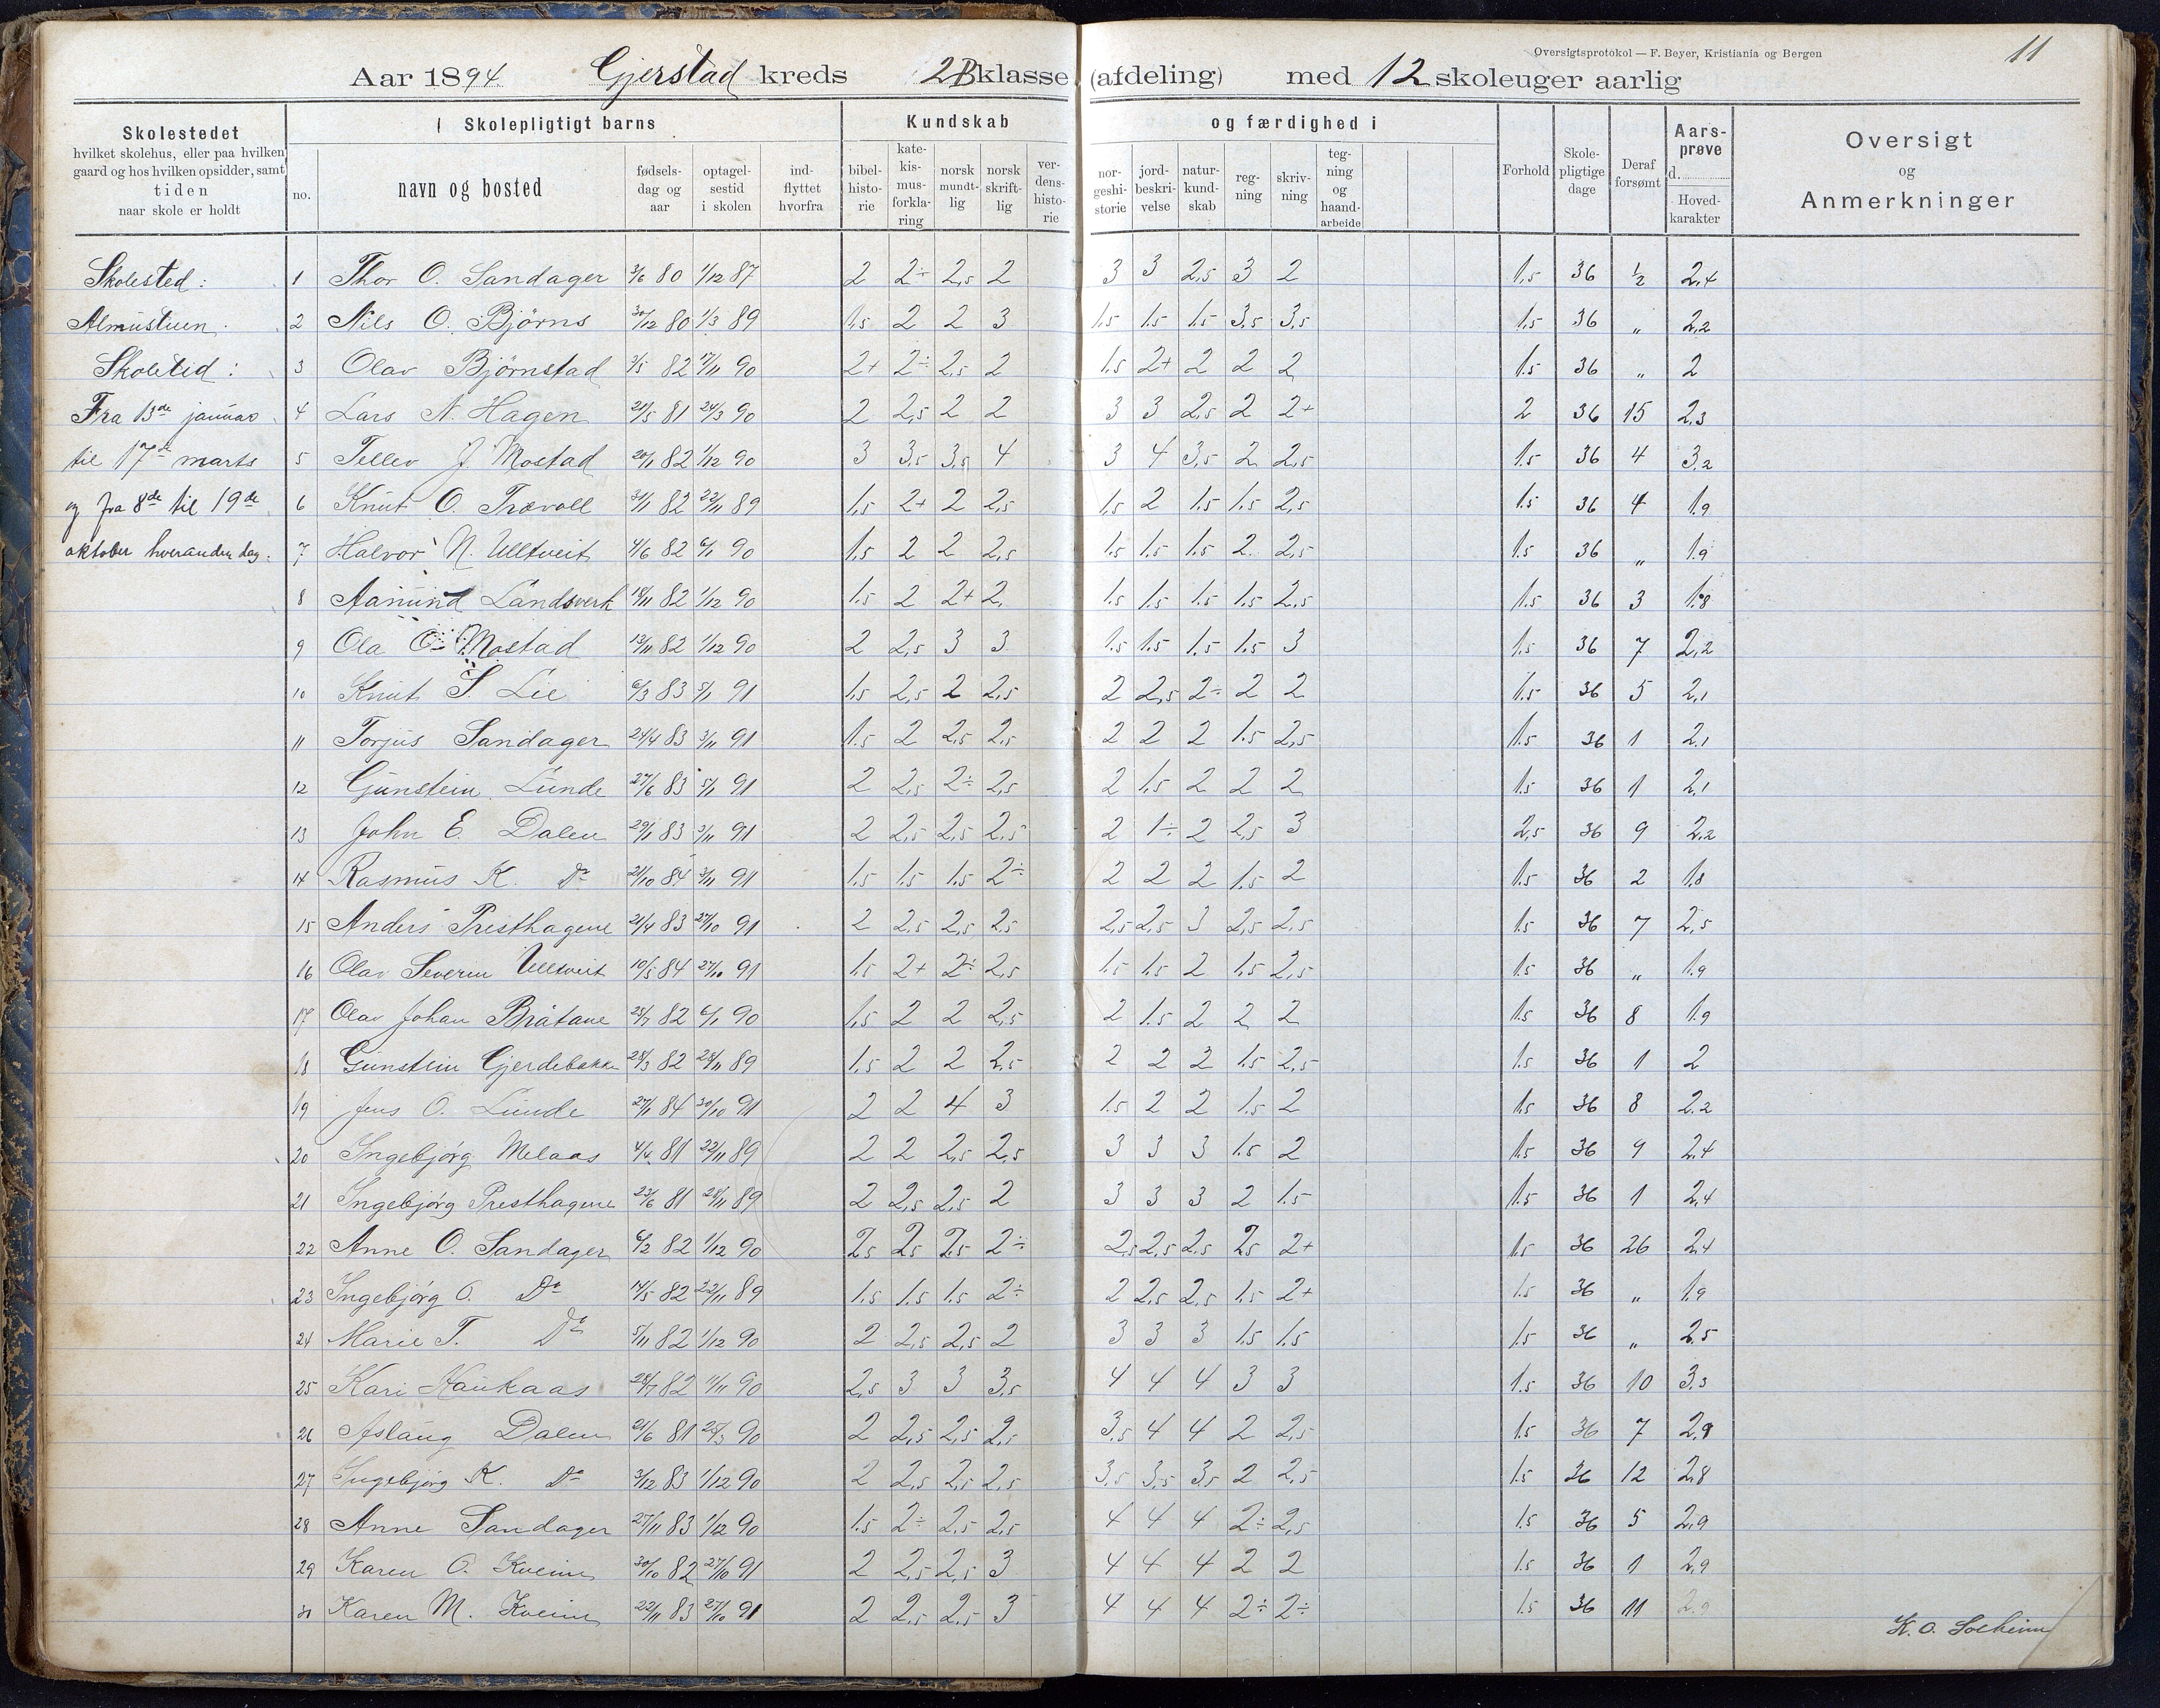 Oversigtsprotokol — F. Beyer, Kristiania og Bergen
11
Aar 1894. Gjerstad kreds 2B klasse (afdeling) med 12 skoleuger aarlig
Skolestedet
hvilket skolehus, eller paa hvilken
gaard og hos hvilken opsidder, samt
tiden
naar skole er holdt
Skolepligtigt barns
no.
navn og bosted
fødsels-
dag og
aar
optagel-
sestid
i skolen
ind-
flyttet
hvorfra
Kundskab og færdighed i
bibel-
histo-
rie
kate-
kis-
mus-
forkla-
ring
norsk
mundt-
lig
norsk
skrift-
lig
ver-
dens-
histo-
rie
nor-
geshi-
storie
jord-
beskri-
velse
natur-
kund-
skab
reg-
ning
skriv-
ning
teg-
ning
og
haand-
arbeide
Forhold
Skole-
pligtige
dage
Deraf
forsømt
Aars-
prøve
d.
Hoved-
karakter
Oversigt
og
Anmerkninger
Skolested:
Almustuen.
Skoletid:
Fra 13de januar
til 17de marts
og fra 8de til 19de
oktober hveranden dag.
1 Thor O. Sandager 3/6 80 1/12 87 2 2÷ 2,5 2 3 3 2,5 3 2 1,5 36 1/2 2,4
2 Nils O. Bjørns 30/12 80 1/3 89 1,5 2 2 3 1,5 1,5 1,5 3,5 3,5 1,5 36 „ 2,2
3 Olav Bjørnstad 3/5 82 17/11 90 2+ 2÷ 2,5 2 1,5 2+ 2 2 2 1,5 36 „ 2
4 Lars N. Hagen 21/5 81 24/3 90 2 2,5 2 2 3 3 2,5 2 2+ 2 36 15 2,3
5 Tellev J. Mostad 20/1 82 1/12 90 3 3,5 3,5 4 3 4 3,5 2 2,5 1,5 36 4 3,2
6 Knut O. Trævoll 31/1 82 22/11 89 1,5 2+ 2 2,5 1,5 2 1,5 1,5 2,5 1,5 36 4 1,9
7 Halvor N. Ulltveit 4/6 82 6/1 90 1,5 2 2 2,5 1,5 1,5 1,5 2 2,5 1,5 36 „ 1,9
8 Aamund Landsverk 18/11 82 1/12 90 1,5 2 2+ 2 1,5 1,5 1,5 1,5 2,5 1,5 36 3 1,8
9 Ola O. Mostad 13/11 82 1/12 90 2 2,5 3 3 1,5 1,5 1,5 1,5 3 1,5 36 7 2,2
10 Knut S Lie 6/3 83 5/1 91 1,5 2,5 2 2,5 2 2,5 2÷ 2 2 1,5 36 5 2,1
11 Torjus Sandager 24/4 83 3/11 91 1,5 2 2,5 2,5 2 2 2 1,5 2,5 1,5 36 1 2,1
12 Gunstein Lunde 27/6 83 5/1 91 2 2,5 2÷ 2,5 2 1,5 2 2 2 1,5 36 1 2,1
13 John E. Dalen 29/1 83 3/11 91 2 2,5 2,5 2,5 2 1÷ 2 2,5 3 2,5 36 9 2,2
14 Rasmus K. Do 21/10 84 3/11 91 1,5 1,5 1,5 2÷ 2 2 2 1,5 2 1,5 36 2 1,8
15 Anders Presthagene 21/4 83 27/10 91 2 2,5 2,5 2,5 2,5 2,5 3 2,5 2,5 1,5 36 7 2,5
16 Olav Severin Ulltveit 10/5 84 27/10 91 1,5 2+ 2÷ 2,5 1,5 1,5 2 1,5 2,5 1,5 36 „ 1,9
17 Olav Johan Bråtane 25/7 82 6/1 90 1,5 2 2 2,5 2 1,5 2 2 2 1,5 36 8 1,9
18 Gunstein Gjerdebakke 28/3 82 28/11 89 1,5 2 2 2,5 2 2 2 1,5 2,5 1,5 36 1 2
19 Jens O. Lunde 27/1 84 30/10 91 2 2 4 3 1,5 2 2 1,5 2 1,5 36 8 2,2
20 Ingebjørg Melaas 4/4 81 22/11 89 2 2 2,5 2,5 3 3 3 1,5 2 1,5 36 9 2,4
21 Ingebjørg Presthagene 23/6 81 28/11 89 2 2,5 2,5 2 3 3 3 2 1,5 1,5 36 1 2,4
22 Anne O. Sandager 6/2 82 1/12 90 2,5 2,5 2,5 2÷ 2,5 2,5 2,5 2,5 2+ 1,5 36 26 2,4
23 Ingebjørg O. Do 14/5 82 22/11 89 1,5 1,5 1,5 2÷ 2 2,5 2,5 1,5 2+ 1,5 36 „ 1,9
24 Marie T. Do 5/11 82 1/12 90 2 2,5 2,5 2 3 3 3 1,5 1,5 1,5 36 „ 2,5
25 Kari Haukaas 28/7 82 11/11 90 2,5 3 3 3,5 4 4 4 3 3 1,5 36 10 3,3
26 Aslaug Dalen 21/6 81 25/3 90 2 2,5 2,5 2,5 3,5 4 4 2 2,5 1,5 36 7 2,9
27 Ingebjørg K. Do 3/12 83 1/12 90 2 2,5 2,5 2,5 3,5 3,5 3,5 2 2,5 1,5 36 12 2,8
28 Anne Sandager 27/11 83 1/12 90 1,5 2÷ 2,5 2,5 4 4 4 2÷ 2,5 1,5 36 5 2,9
29 Karen O. Kveim 30/10 82 27/10 91 2 2,5 2,5 3 4 4 4 2 2 1,5 36 1 2,9
30 Karen M. Kveim 22/11 83 27/10 91 2 2,5 2,5 3 4 4 4 2÷ 2÷ 1,5 36 11 2,9
K. O. Solheim